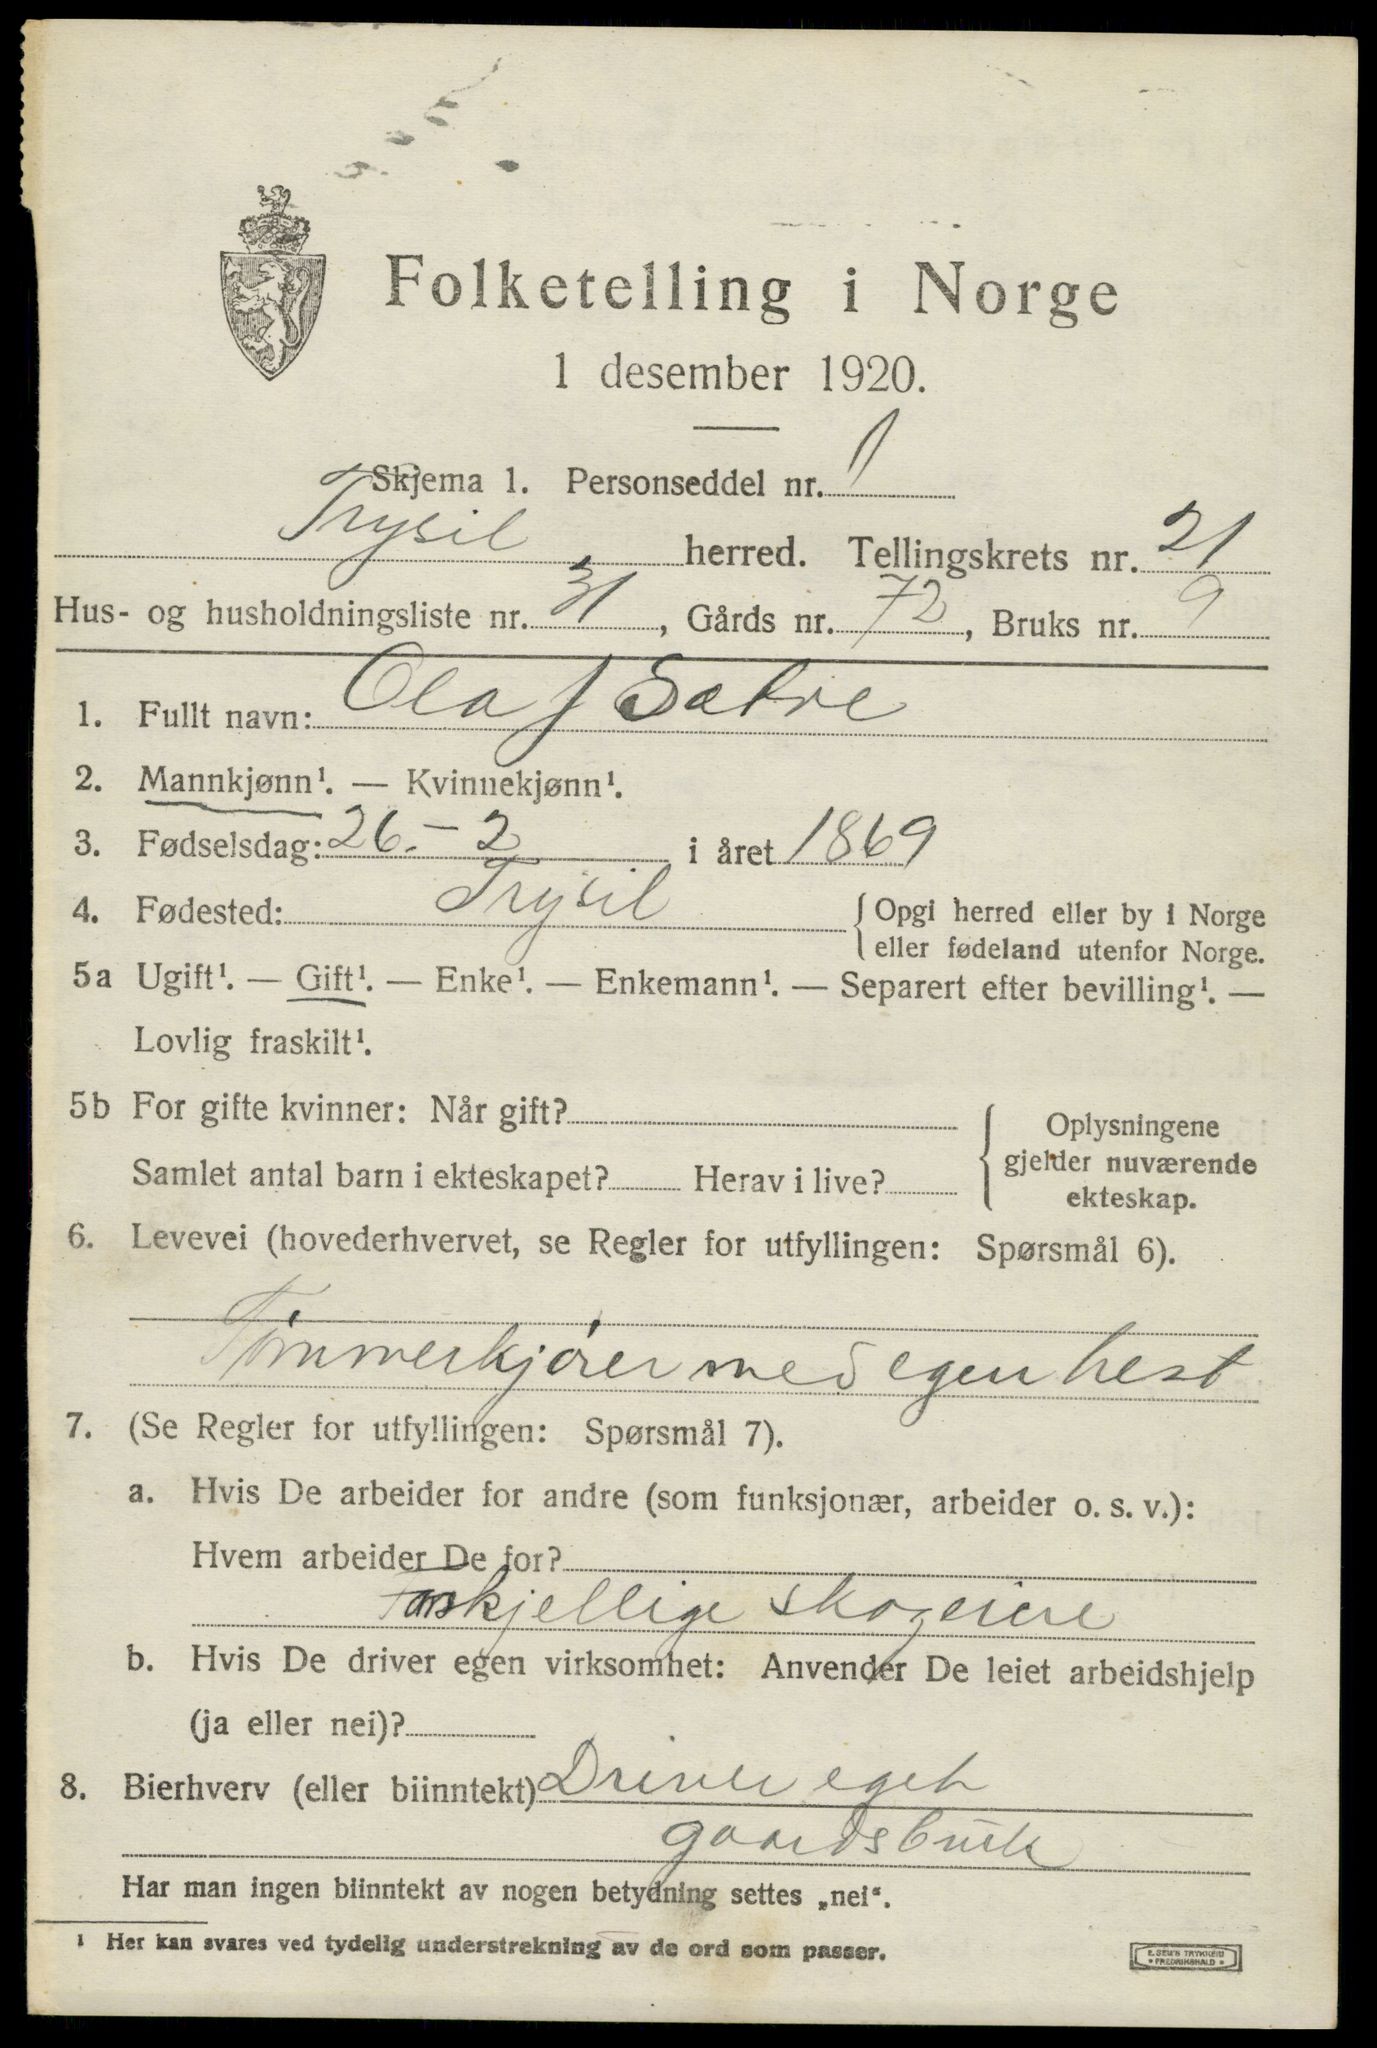 Folketelling i Norge
1 desember 1920.
Skjema 1. Personseddel nr. 1
Trysil herred. Tellingskrets nr. 21
Hus- og husholdningsliste nr. 31, Gårds nr. 72, Bruks nr. 9
1. Fullt navn: Olaf Sætre
2. Mannkjønn¹. — Kvinnekjønn¹.
3. Fødselsdag: 26. - 2 i året 1869
4. Fødested: Trysil { Opgi herred eller by i Norge
eller fødeland utenfor Norge.
5a Ugift¹. — Gift¹. — Enke¹. — Enkemann¹. — Separert efter bevilling¹. —
Lovlig fraskilt¹.
5b For gifte kvinner: Når gift?
Samlet antal barn i ekteskapet? Herav i live?
{ Oplysningene
gjelder nuværende
ekteskap.
6. Levevei (hovederhvervet, se Regler for utfyllingen: Spørsmål 6).
Tømmerkjører med egen hest
7. (Se Regler for utfyllingen: Spørsmål 7).
a. Hvis De arbeider for andre (som funksjonær, arbeider o. s. v.):
Hvem arbeider De for?
Forskjellige skogeiere
b. Hvis De driver egen virksomhet: Anvender De leiet arbeidshjelp
(ja eller nei)?
8. Bierhverv (eller biinntekt) Driver eget
gaardsbruk
Har man ingen biinntekt av nogen betydning settes „nei“.
¹ Her kan svares ved tydelig understrekning av de ord som passer.
E. SEM'S TRYKKERI
* FREDRIKSHALD *